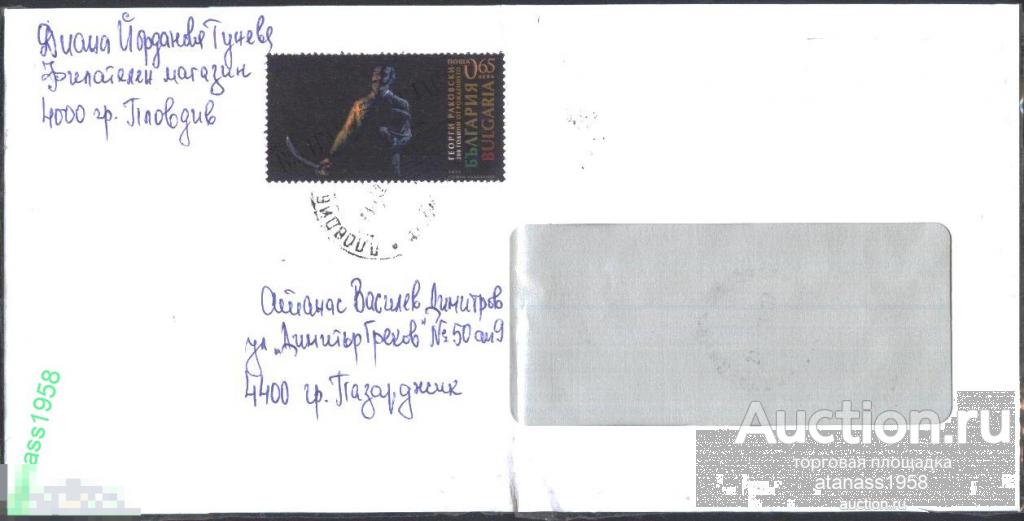 Диана Йорданова Тунева
Филателен магазин
4000 гр. Пловдив
ПОЩА 0.65
ЛЕВА
ГЕОРГИ РАКОВСКИ
200 ГОДИНИ ОТ РОЖДЕНИЕТО
БЪЛГАРИЯ
BULGARIA
ПЛОВДИВ
Атанас Василев Димитров
ул „Димитър Греков“ № 50 ап 9
4400 гр. Пазарджик
ass1958
Auction.ru
торговая площадка
atanass1958
auction.ru